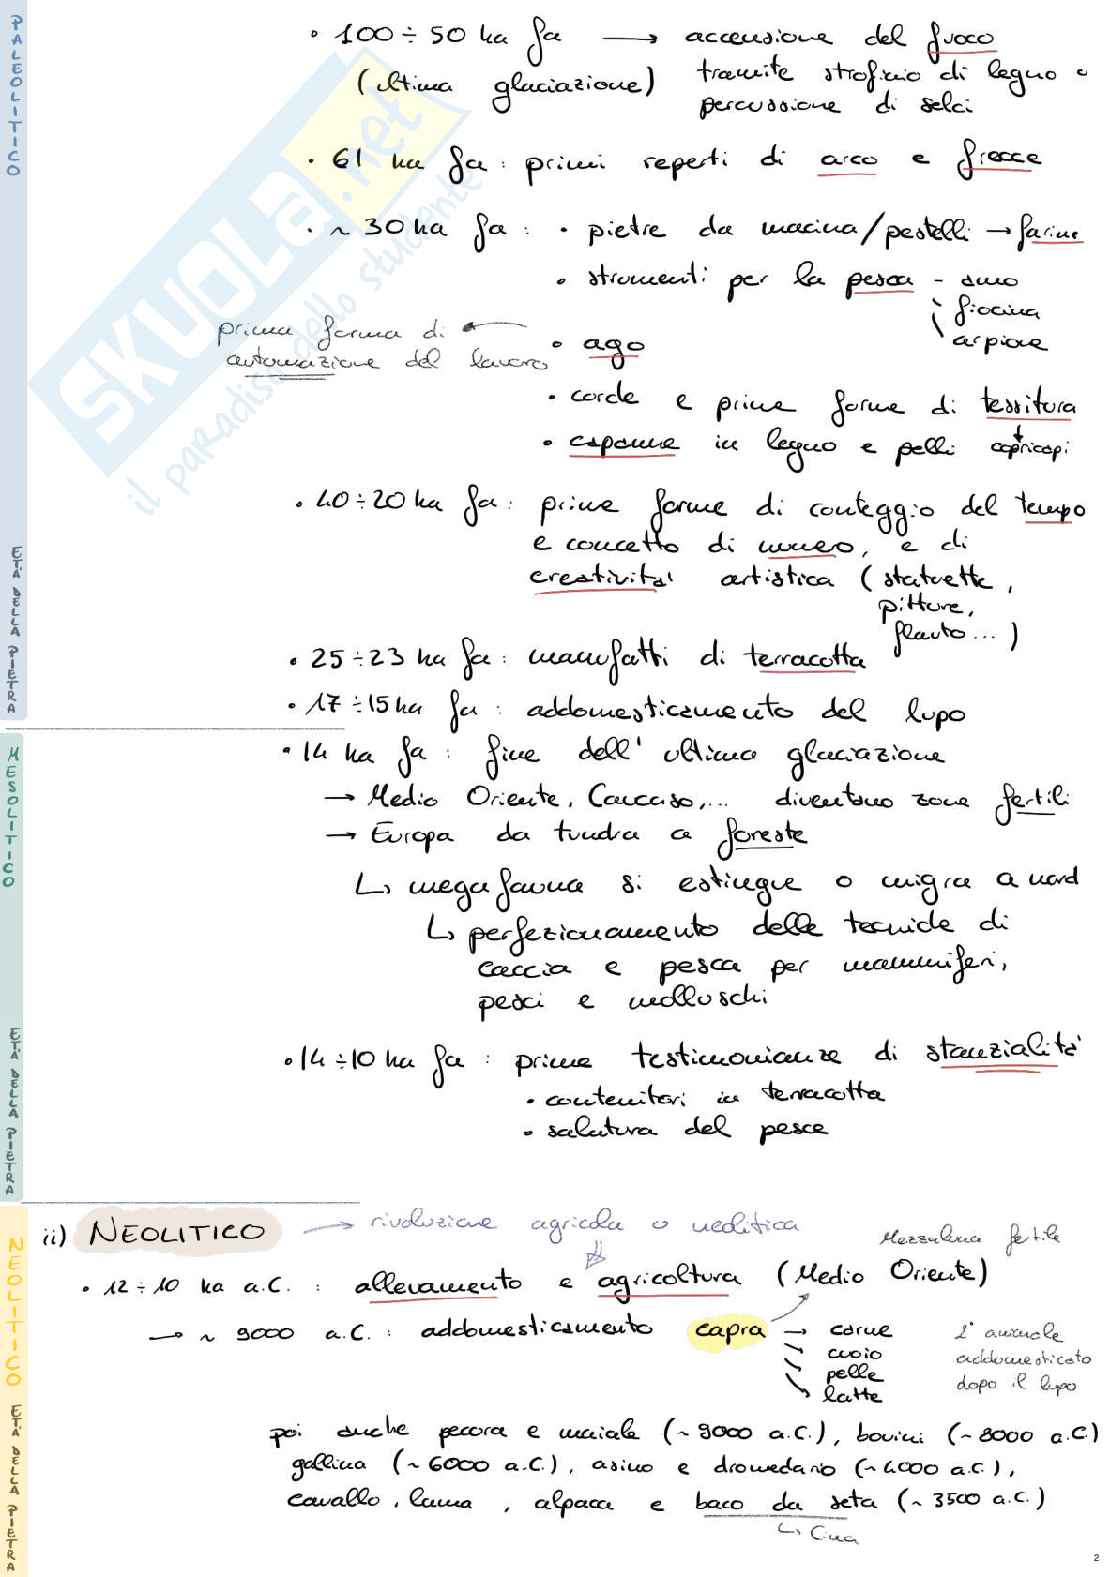 PALEOLITICO
ETÀ DELLA PIETRA
• 100 ÷ 50 ka fa → accensione del fuoco
(ultima glaciazione) tramite strofinio di legno o
percussione di selci
• 61 ka fa : primi reperti di arco e frecce
• ~ 30 ka fa : • pietre da macina/pestelli → farine
• strumenti per la pesca - amo
fiocina
arpione
prima forma di ← • ago
automazione del lavoro
• corde e prime forme di tessitura
• capanne in legno e pelli copricapi
• 40 ÷ 20 ka fa : prime forme di conteggio del tempo
e concetto di numero, e di
creatività artistica (statuette,
pitture,
flauto...)
• 25 ÷ 23 ka fa : manufatti di terracotta
• 17 ÷ 15 ka fa : addomesticamento del lupo
MESOLITICO
ETÀ DELLA PIETRA
• 14 ka fa : fine dell'ultima glaciazione
→ Medio Oriente, Caucaso,... diventano zone fertili
→ Europa da tundra a foreste
↳ megafauna si estingue o migra a nord
↳ perfezionamento delle tecniche di
caccia e pesca per mammiferi,
pesci e molluschi
• 14 ÷ 10 ka fa : prime testimonianze di stanzialità
• contenitori in terracotta
• salatura del pesce
NEOLITICO
ETÀ DELLA PIETRA
ii) NEOLITICO → rivoluzione agricola o neolitica
Mezzaluna fertile
• 12 ÷ 10 ka a.C. : allevamento e agricoltura (Medio Oriente)
→ ~ 9000 a.C. : addomesticamento capra → carne
cuoio
pelle
latte
1° animale
addomesticato
dopo il lupo
poi anche pecora e maiale (~ 9000 a.C.), bovini (~ 8000 a.C.)
gallina (~ 6000 a.C.), asino e dromedario (~ 4000 a.C.),
cavallo, lama, alpaca e baco da seta (~ 3500 a.C.)
↳ Cina
2
SKUOLA.net
il paradiso dello studente